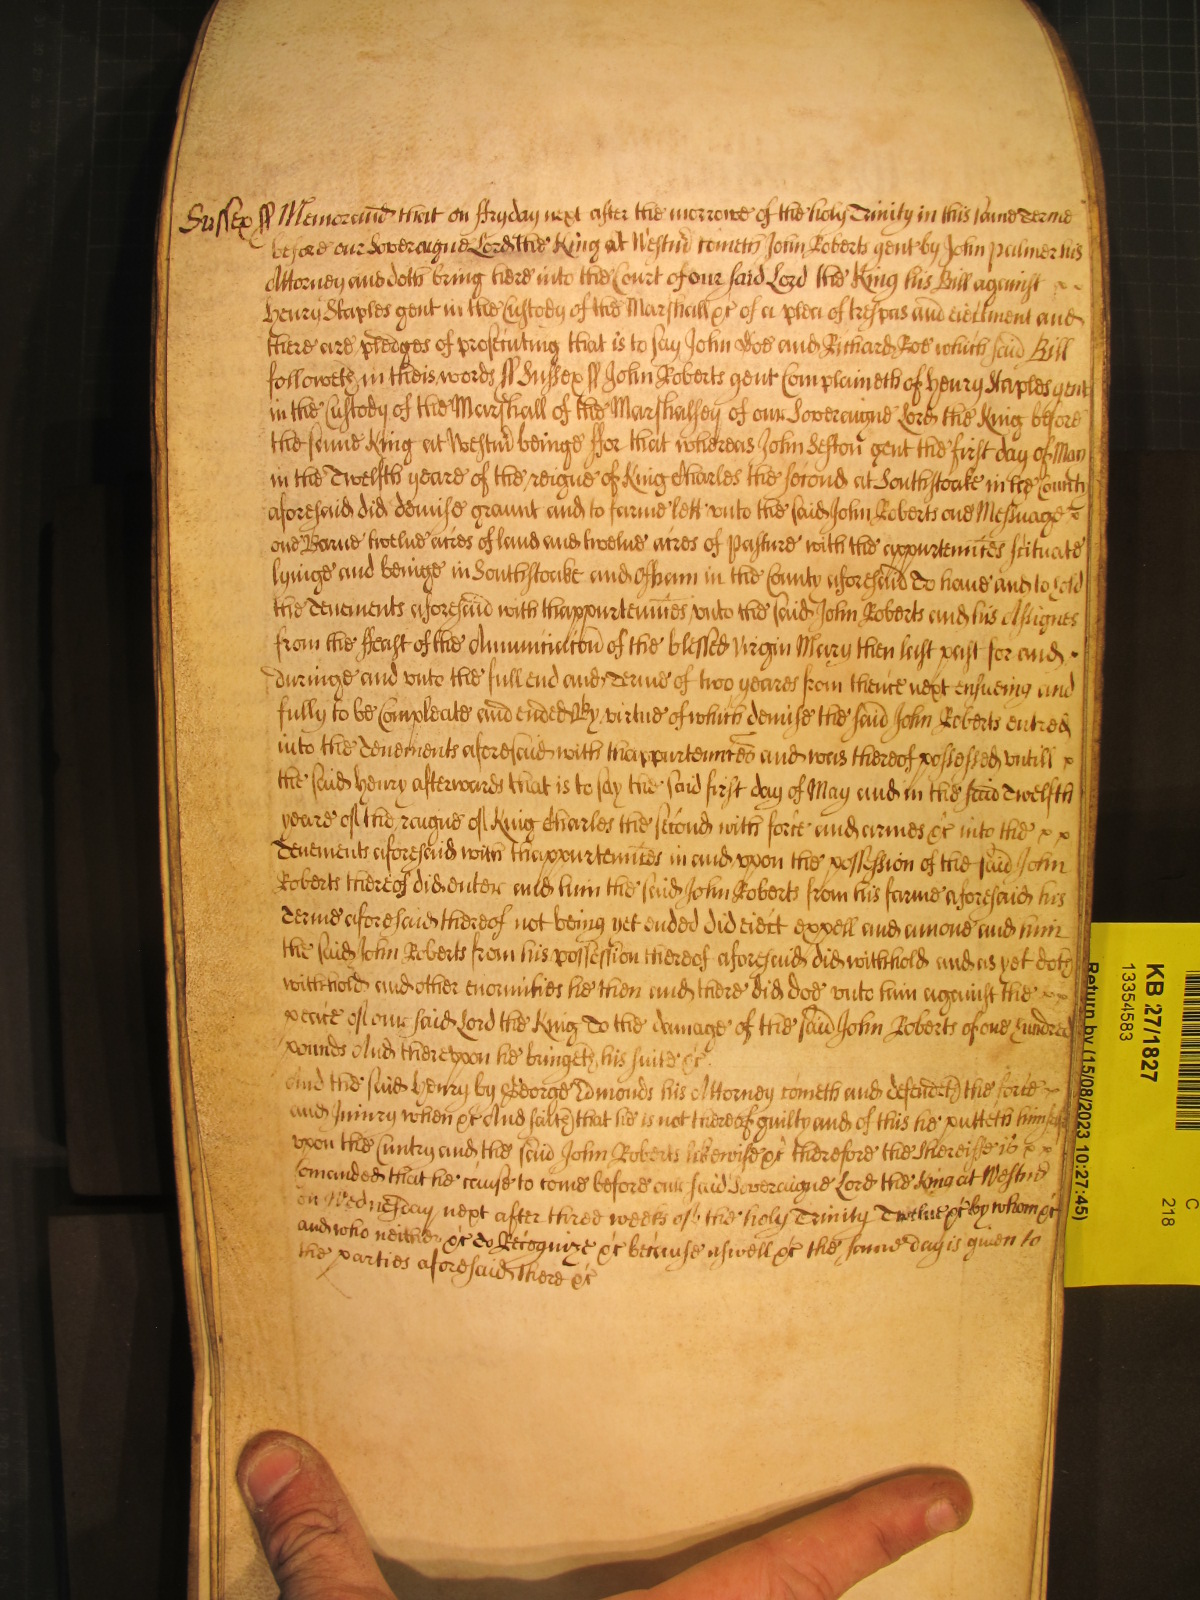 Sussex ss Memorand that on ffryday next after the morrowe of the holy Trinity in this same Terme
before our Soveraigne Lord the King at Westm̄ cometh John Roberts gent by John palmer his
Attorney and doth bring here into the Court of our said Lord the King his Bill against
Henry Staples gent in the Custody of the Marshall &c of a plea of trespas and eiectment and
there are pledges of prosecuting that is to say John Doe and Richard Roe which said Bill
followeth in theis words ss Sussex ss John Roberts gent Complaineth of Henry Staples gent
in the Custody of the Marshall of the Marshalsey of our Soveraigne Lord the King before
the same King at Westm̄ beinge ffor that whereas John Sefton gent the first day of May
in the Twelfth yeare of the reigne of King Charles the second at Southstoake in the County
aforesaid did demise graunt and to farme lett vnto the said John Roberts one Messuage
one Barne twelue acres of land and twelue acres of pasture with the appurtennc̄es scituate
lyinge and beinge in Southstoake and Offham in the County aforesaid To haue and to hold
the Tenements aforesaid with thappurtennc̄es vnto the said John Roberts and his Assignes
from the ffeast of the Annunciac̄on of the blessed Virgin Mary then last past for and
duringe and vnto the full end and Terme of two yeares from thence next ensueing and
fully to be Compleate and ended By virtue of which demise the said John Roberts entred
into the Tenements aforesaid with thappurtennc̄es and was thereof possessed vntill
the said Henry afterwards that is to say the said first day of May and in the said Twelfth
yeare of the raigne of King Charles the second with force and armes &c into the
Tenements aforesaid with thappurtennc̄es in and vpon the possession of the said John
Roberts thereof did enter and him the said John Roberts from his farme aforesaid his
Terme aforesaid thereof not being yet ended did eiect expell and amove and him
the said John Roberts from his possession thereof aforesaid did withhold and as yet doth
withhold and other enormities he then and there did doe vnto him against the
peace of our said Lord the King To the damage of the said John Roberts of one hundred
pounds And therevpon he bringeth his suite &c
And the said Henry by George Edmonds his Attorney cometh and defendeth the force
and Iniury when &c And saith that he is not thereof guilty and of this he putteth himself
vpon the Cuntry and the said John Roberts likewise &c therefore the Shereiffe is
comanded that he cause to come before our said Soveraigne Lord the King at Westm̄
on Wednesday next after three weeks of the holy Trinity Twelue &c by whom &c
and who neither &c To Recognize &c because aswell &c the same day is given to
the parties aforesaid there &c
KB 27/1827
13354583
Return by (15/08/2023 10:27:45)
C
218